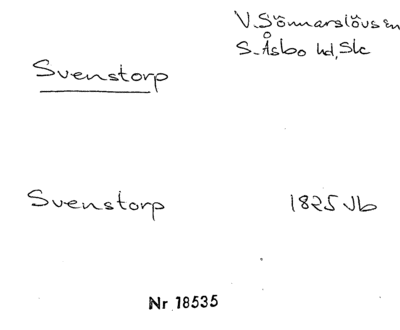 V. Sönnarslövs sn
S. Åsbo hd, Sk
Svenstorp
Svenstorp 1825 Jb
Nr 18535